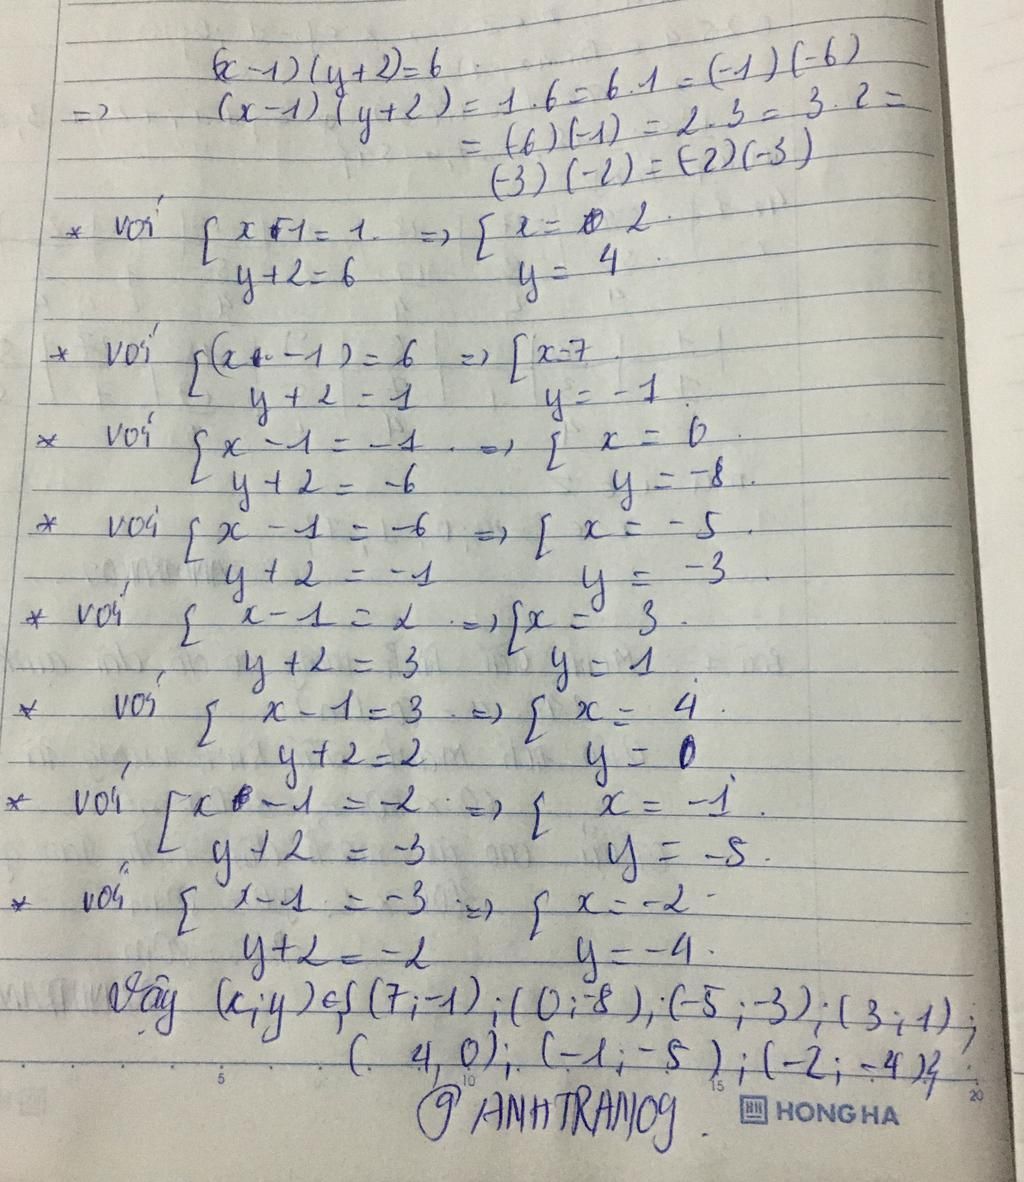 (x-1)(y+2)=6
=> (x-1)(y+2) = 1.6 = 6.1 = (-1)(-6)
= (-6)(-1) = 2.3 = 3.2 =
(-3)(-2) = (-2)(-3)
* với { x-1 = 1 => { x = 2
y+2=6 y = 4
* với { (x-1) = 6 => { x=7
y+2 = 1 y = -1
* với { x-1 = -1 => { x = 0
y+2 = -6 y = -8
* với { x-1 = -6 => { x = -5
y+2 = -1 y = -3
* với { x-1 = 2 => { x = 3
y+2 = 3 y = 1
* với { x-1 = 3 => { x = 4
y+2 = 2 y = 0
* với { x-1 = -2 => { x = -1
y+2 = -3 y = -5
* với { x-1 = -3 => { x = -2
y+2 = -2 y = -4
Vậy (x;y) ∈ {(7;-1);(0;-8);(-5;-3);(3;1);
(4,0);(-1;-5);(-2;-4)}
5 10 15 20
@ANHTRAM09.
HONG HA